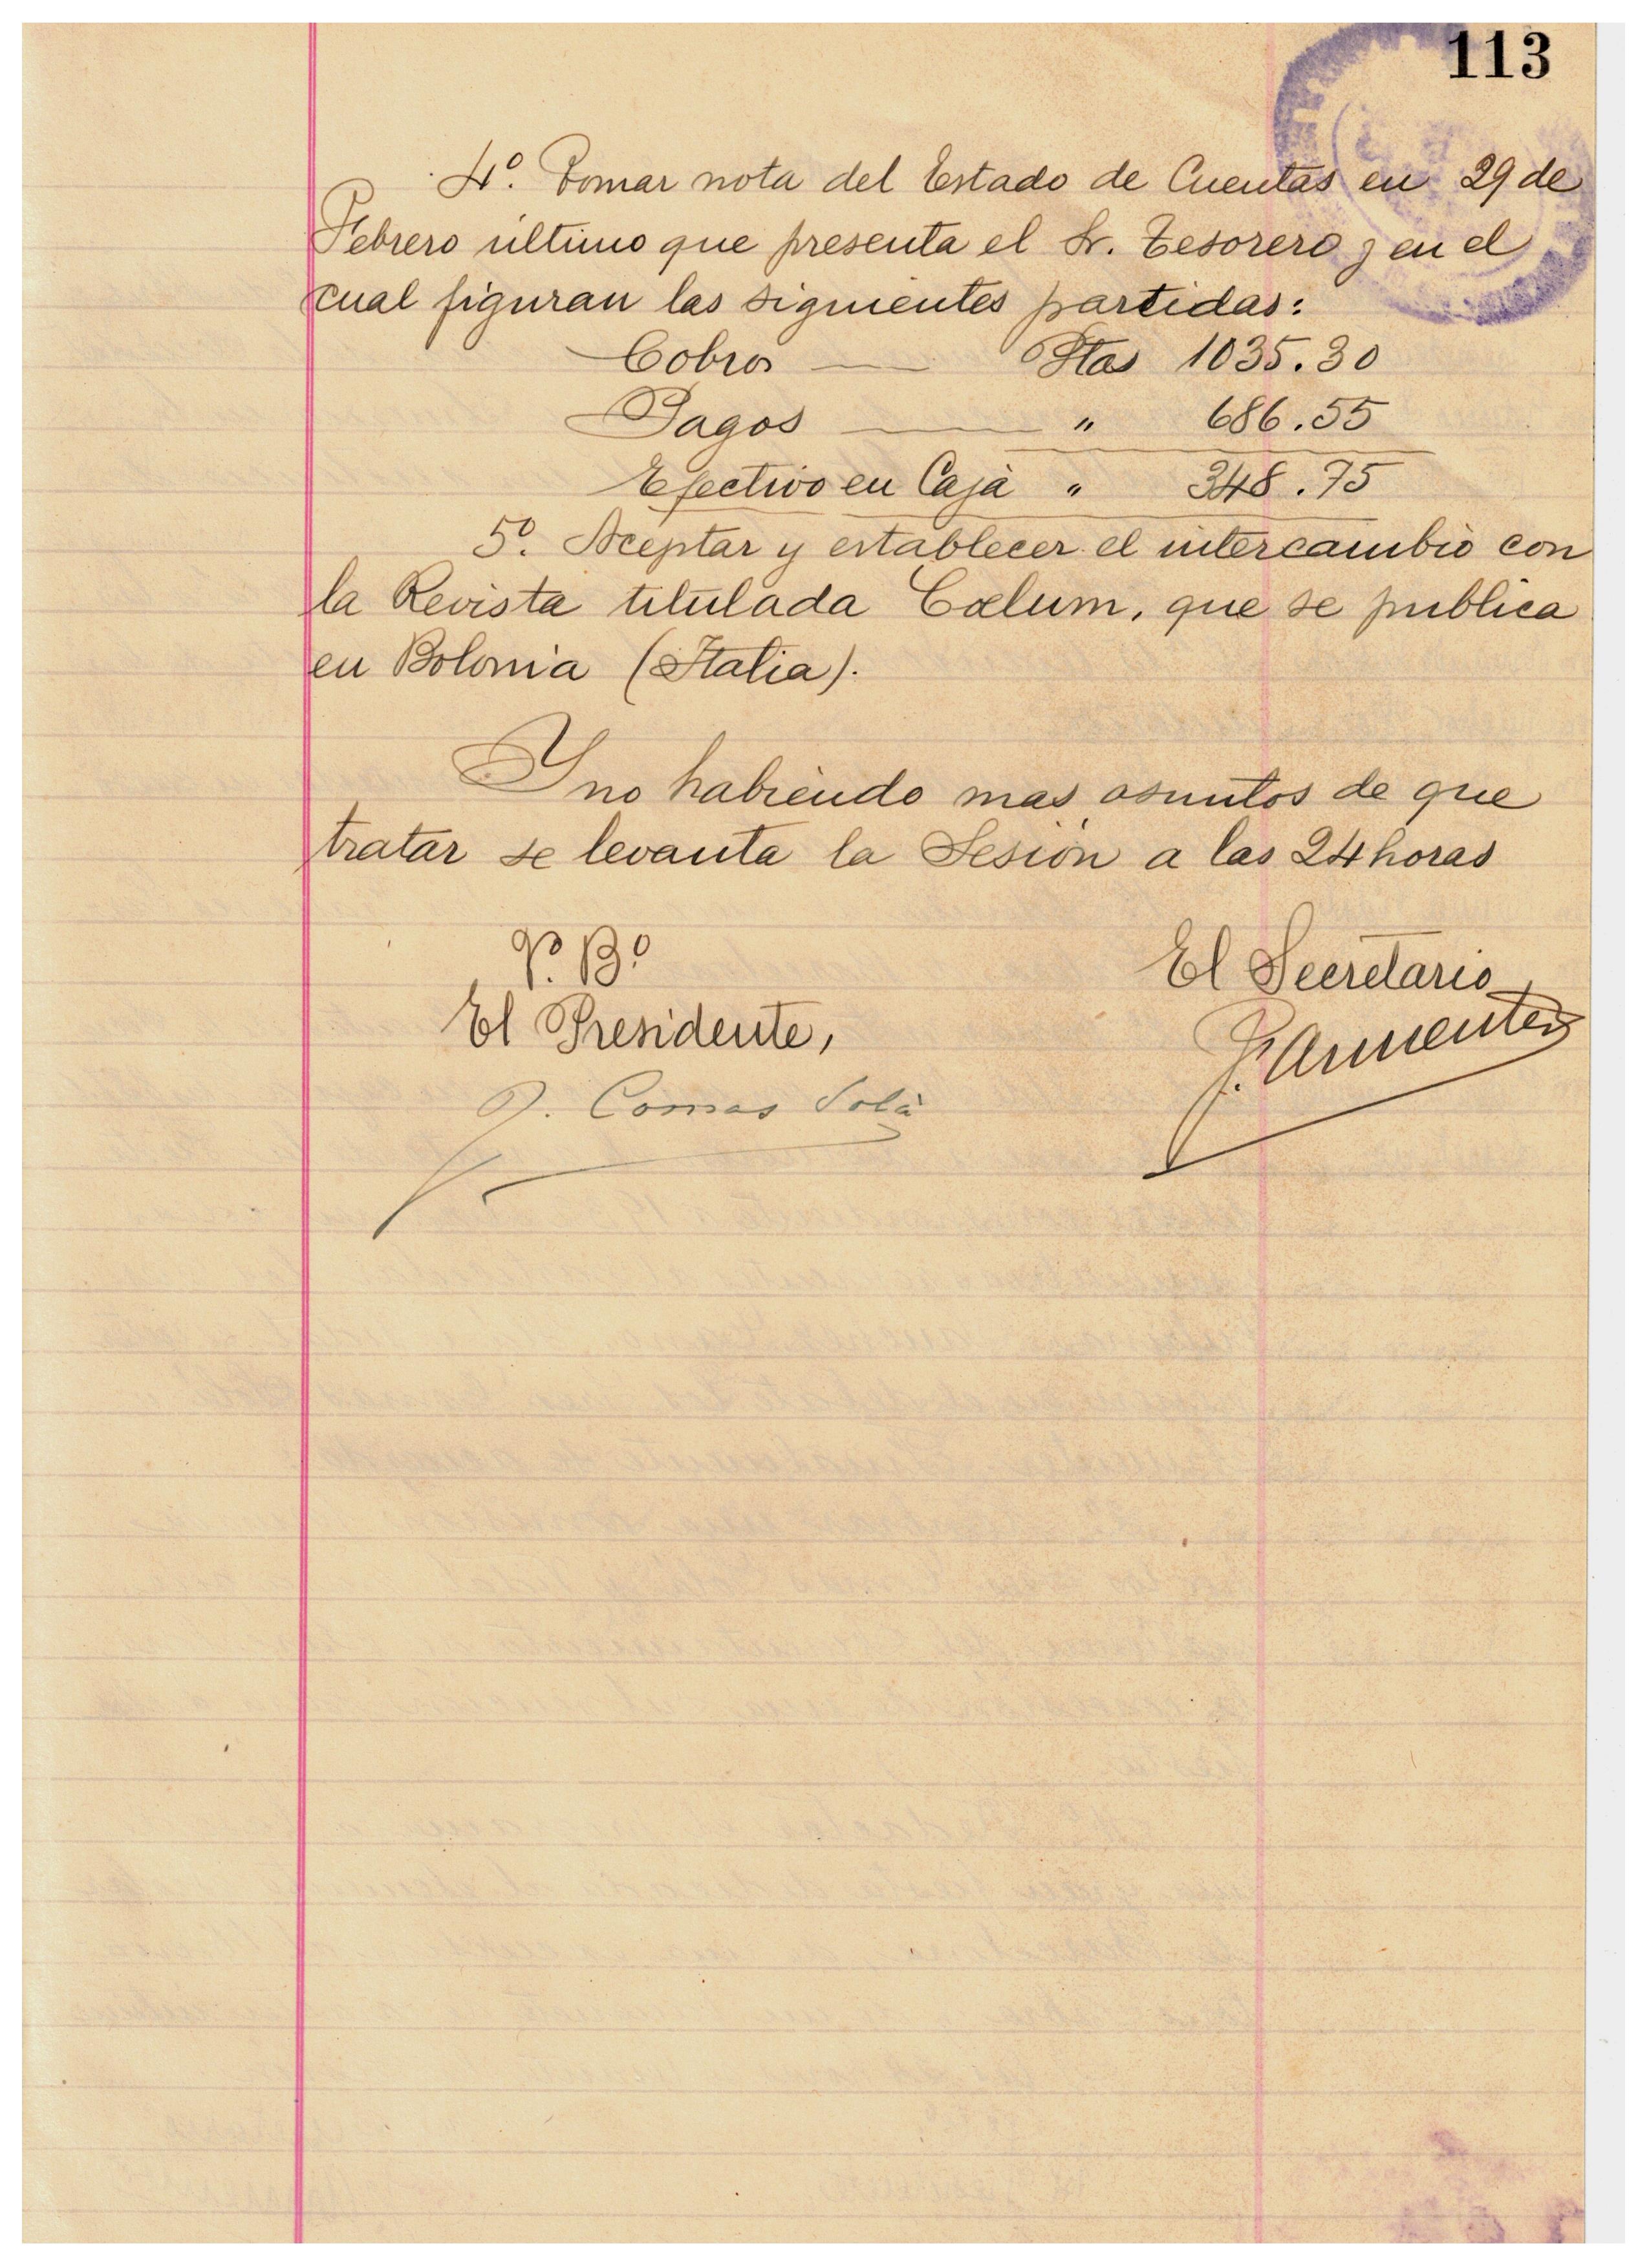 113
4º. Tomar nota del Estado de Cuentas en 29 de
Febrero último que presenta el Sr. Tesorero y en el
cual figuran las siguientes partidas:
Cobros — Ptas 1035.30
Pagos — " 686.55
Efectivo en Caja " 348.75
5º. Aceptar y establecer el intercambio con
la Revista titulada Cœlum, que se publica
en Bolonia (Italia).
Y no habiendo mas asuntos de que
tratar se levanta la Sesión a las 24 horas
Vº. Bº
El Presidente,
J. Comas Solà
El Secretario,
J. Armenter